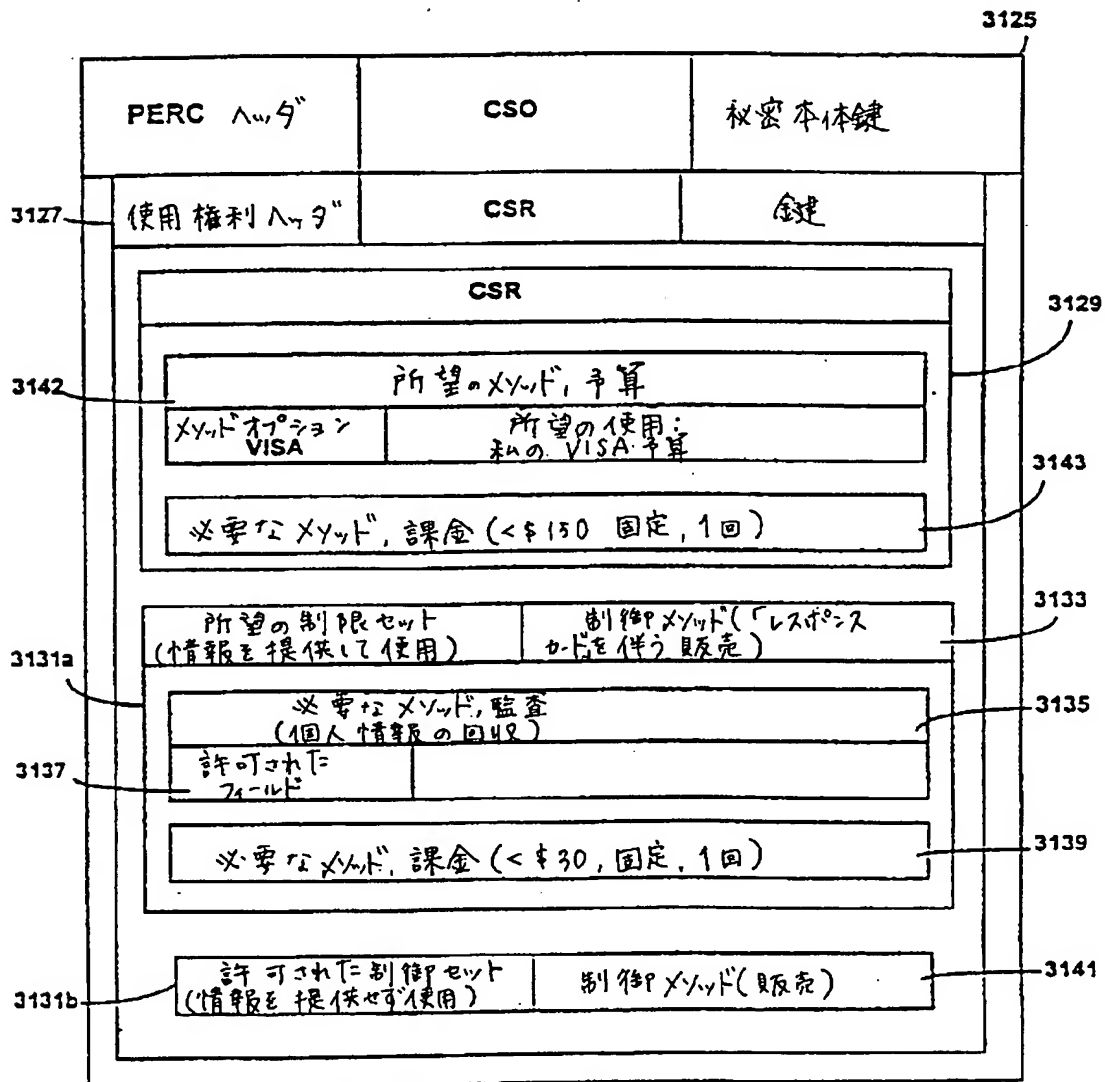 3125
PERC ヘッダ
CSO
秘密本体鍵
3127
使用権利ヘッダ
CSR
鍵
CSR
3129
3142
所望のメソッド, 予算
メソッドオプション
VISA
所望の使用:
私の VISA 予算
3143
必要なメソッド, 課金 (<$150 固定, 1回)
3133
所望の制限セット
(情報を提供して使用)
制御メソッド(「レスポンス
カードを伴う 販売)
3131a
必要なメソッド, 監査
(個人情報の回収)
3135
3137
許可された
フィールド
必要なメソッド, 課金 (<$30, 固定, 1回)
3139
3131b
許可された制御セット
(情報を提供せず使用)
制御メソッド(販売)
3141